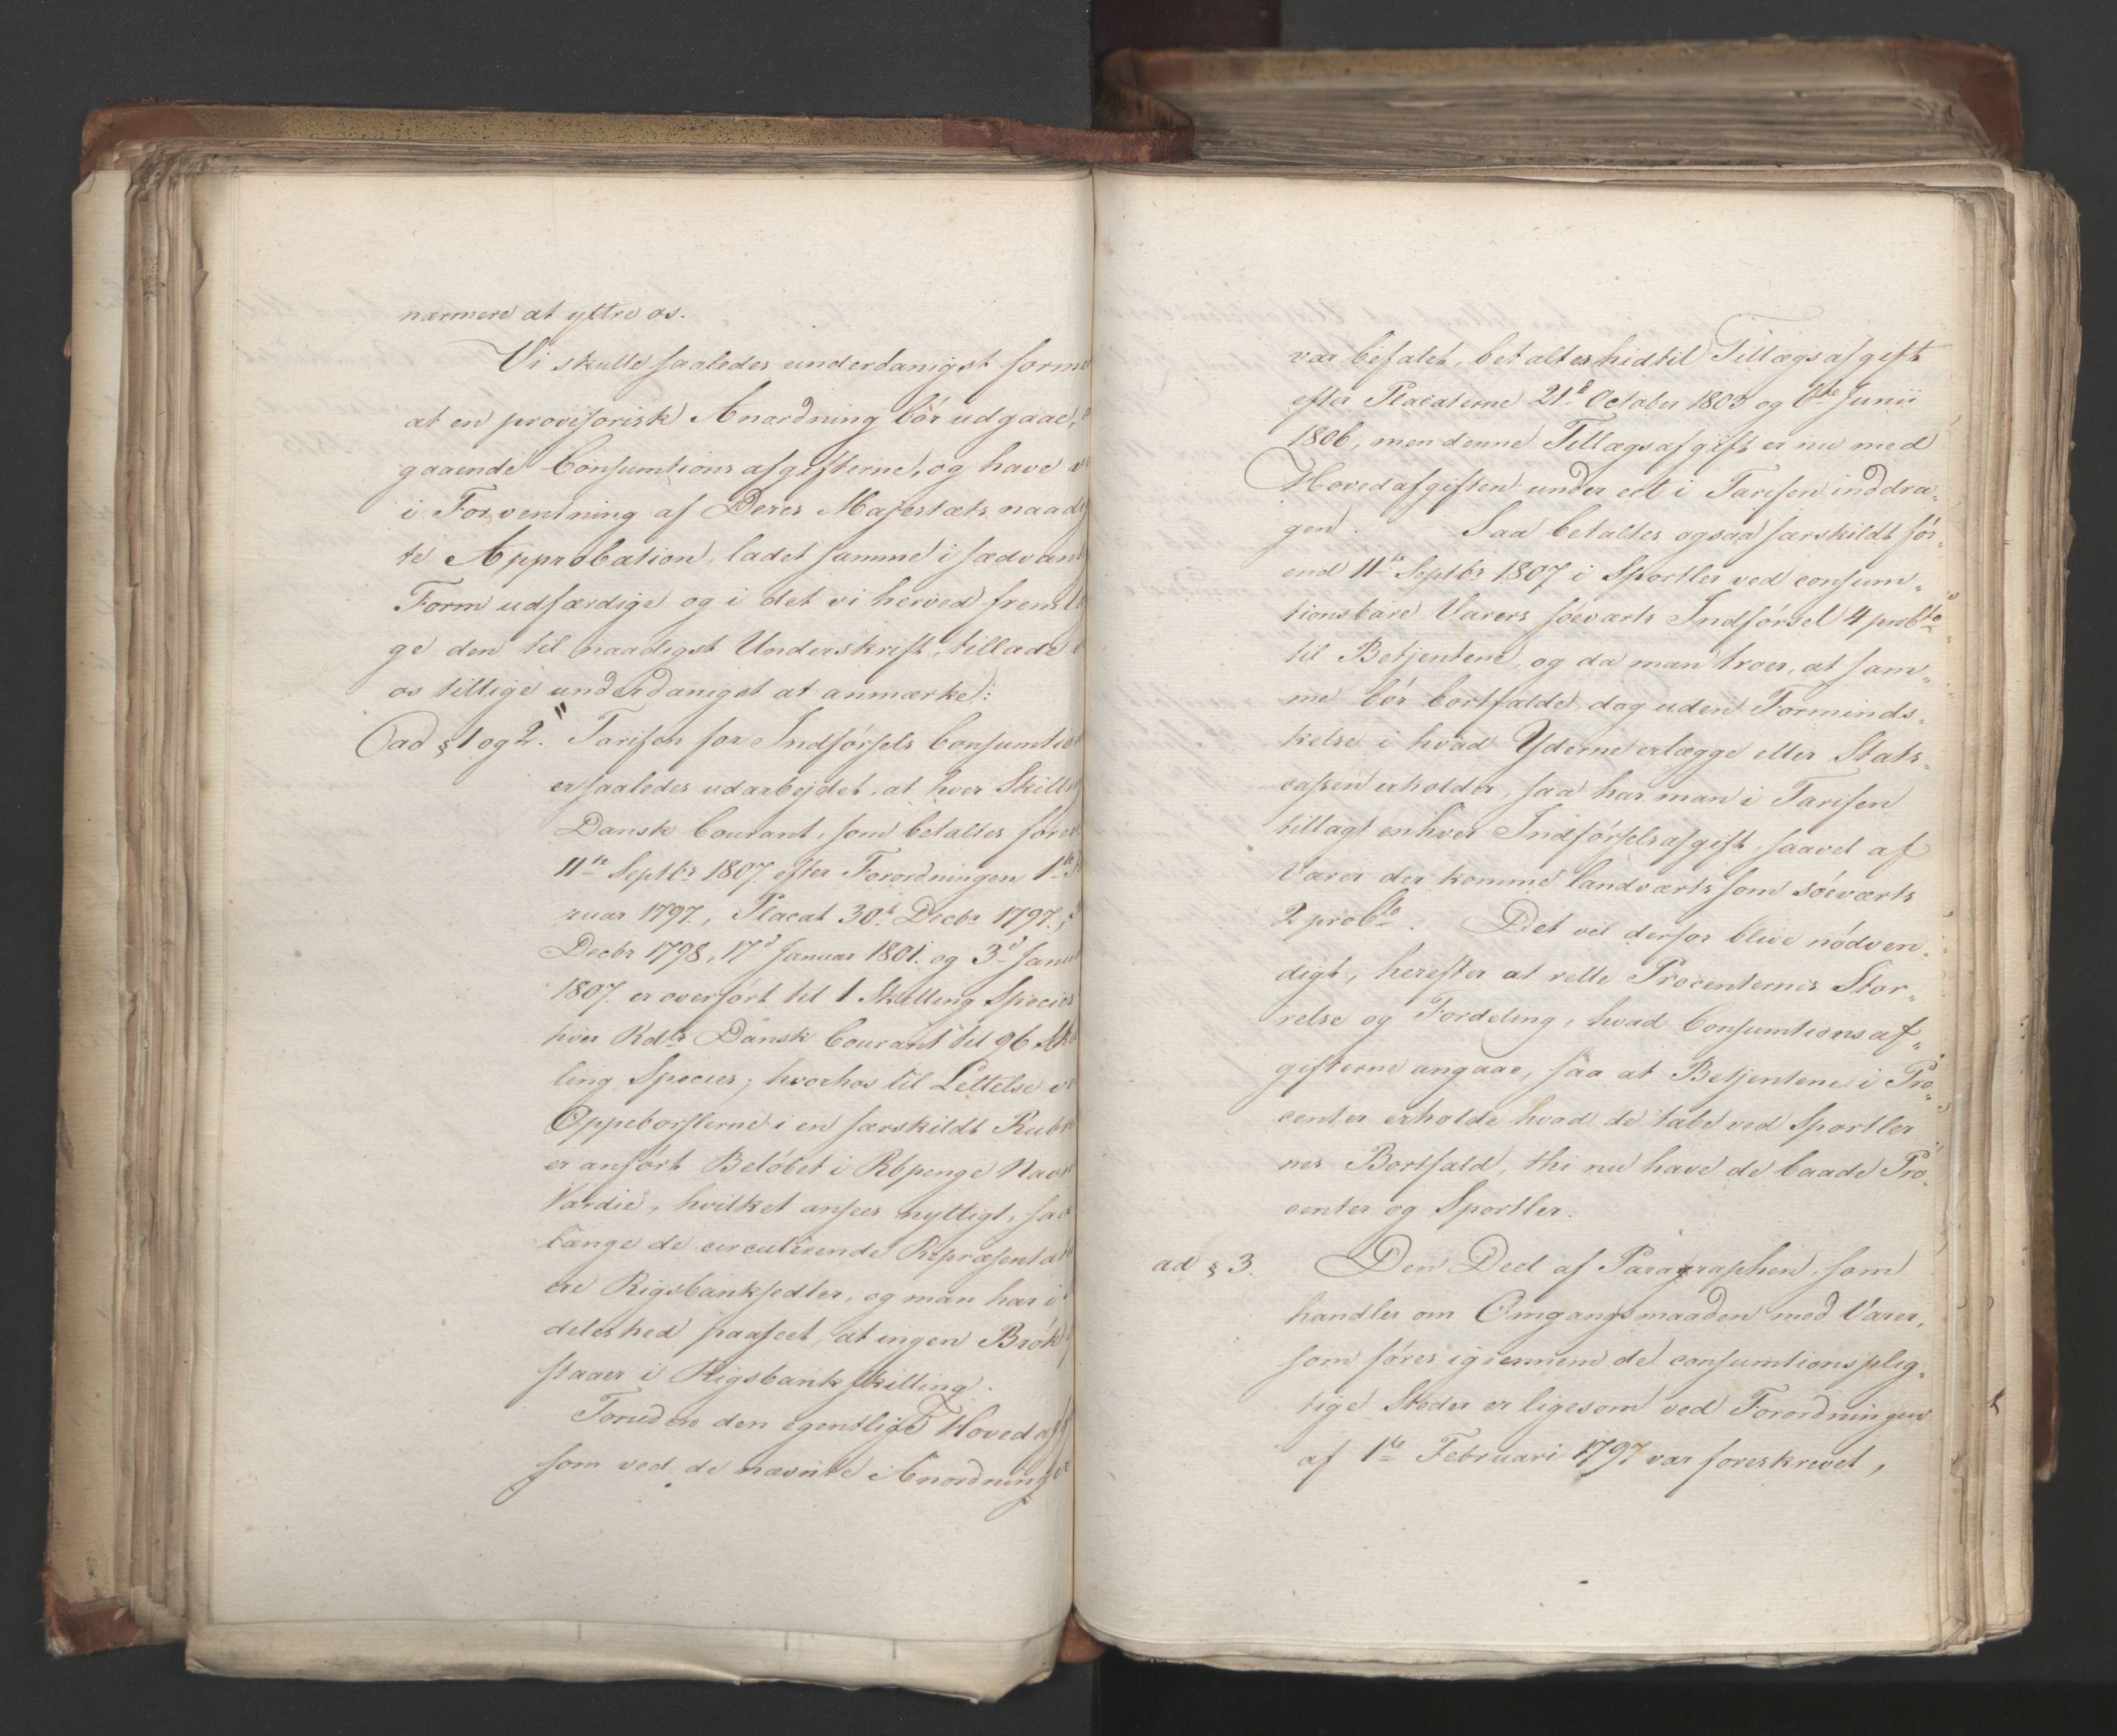 nærmere at yttre os.
Vi skulle saaledes underdanigst form
at en provisorisk Anordning bör udgaae,
gaaende Consumtions afgifterne, og have
i Forventning af Deres Majestæts naad
te Approbation, ladet samme i sædvan
Form udfærdige og i det vi herved freml
ge den til naadigst Underskrift, tillade
os tillige underdanigst at anmærke:
ad § 1 og 2. Tarifen for Indførsels Consumtio
er saaledes udarbejdet, at hver Skill
Dansk Courant, som betaltes føre
11te Septbr 1807 efter Forordningen 1te F
ruar 1797., Placat 30d Decbr 1797.,
Decbr 1798, 17d Januar 1801. og 3d Janu
1807 er overført til 1 Skilling Species
hver Rdlr Dansk Courant til 96 Sk
ling Species; hvorhos til Lettelse
Oppebørslerne i en særskildt Rubr
er anført Beløbet i Rbpenge Navn
Værdie, hvilket ansees nyttigt, saa
længe de circulerende Repræsentat
ere Rigsbanksedler, og man har i
deleshed paaseet, at ingen Brøk
staaer i Rigsbankskilling.
Foruden den egentlige Hoved af
som ved de nævnte Anordning
var befalet, betaltes hidtil Tillægsafgift
efter Placaterne 21d October 1803 og 6te Junii
1806, men denne Tillægsafgift er nu med
Hovedafgiften under eet i Tarifen inddra„
gen. Saa betaltes ogsaa særskildt før„
end 11te Septbr 1807 i Sportler ved consum„
tionsbare Varers søeværts Indførsel 4 proCto
til Betjentene, og da man troer, at sam„
me bör bortfalde dog uden Forminds„
kelse i hvad Yderne erlægge eller Stats„
cassen erholder, saa har man i Tarifen
tillagt enhver Indførselsafgift, saavel af
Varer der komme landværts som søeværts
2 proCto. Det vil derfor blive nödven„
digt, herefter at rette Procenternes Stør„
relse og Fordeling, hvad Consumtionsaf„
gifterne angaae, saa at Betjentene i Pro„
center erholde hvad de tabe ved Sportler
nes Bortfald, thi nu have de baade Pro„
center og Sportler.
ad § 3. Den Deel af Paragraphen, som
handler om Omgangsmaaden med Varer,
som føres igiennem de consumtionsplig„
tige Steder er ligesom ved Forordningen
af 1te Februari 1797 var foreskrevet,